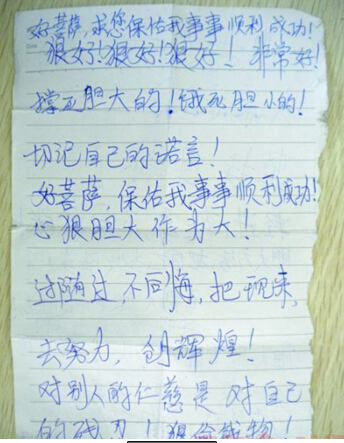 好菩萨,求您保佑我事事顺利成功!
狠好!狠好!狠好! 非常好!
撑死胆大的!饿死胆小的!
切记自己的诺言!
好菩萨,保佑我事事顺利成功!
心狠胆大作为大!
过随过,不回悔,把现来,
去努力,创辉煌!
对别人的仁慈是对自己
的残刃!狠